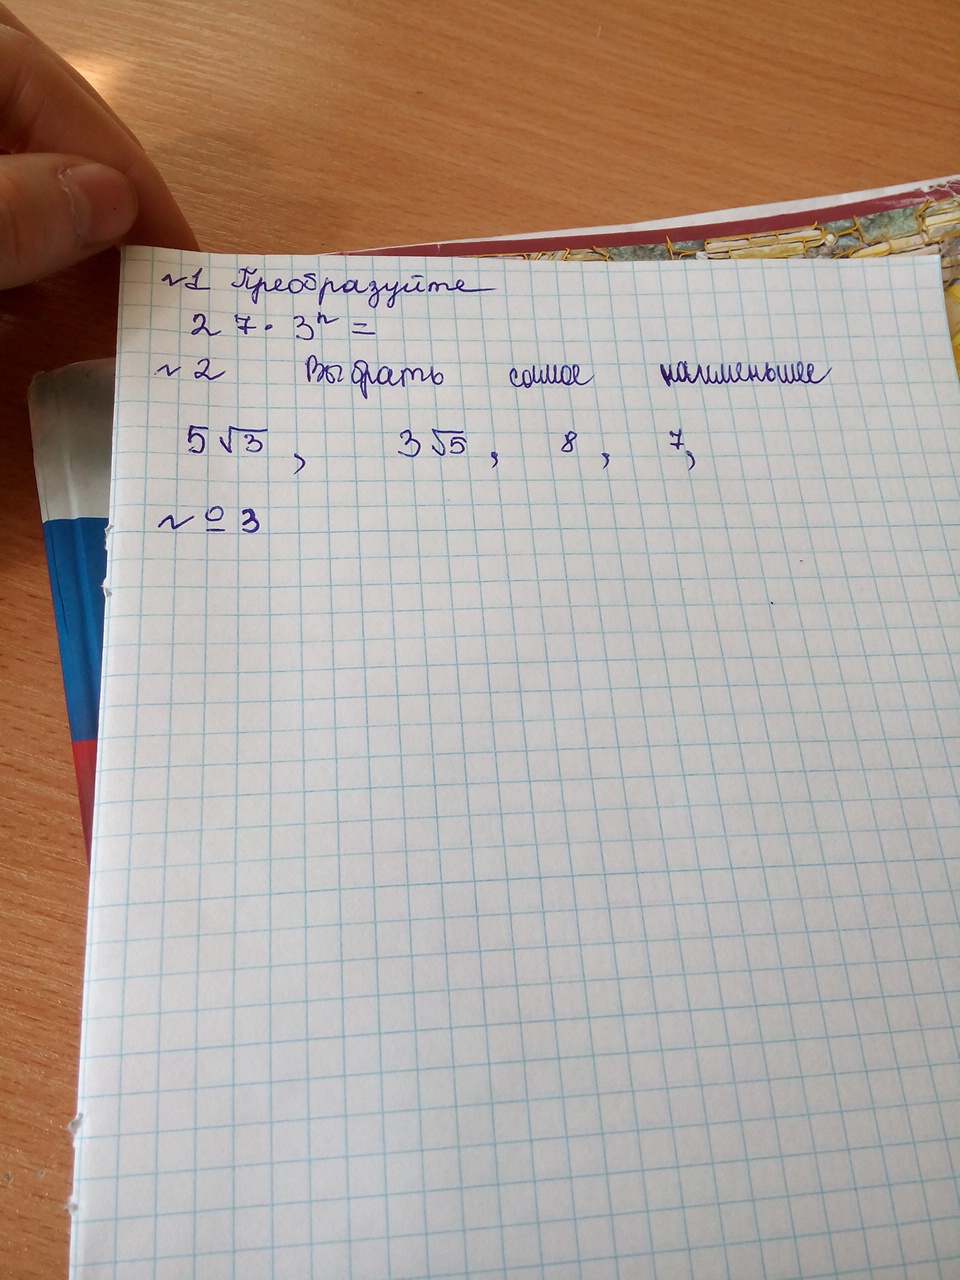 №1 Преобразуйте
27 · 3ⁿ =
№2 Выбрать самое наименьшее
5√3, 3√5, 8, 7,
№ 3